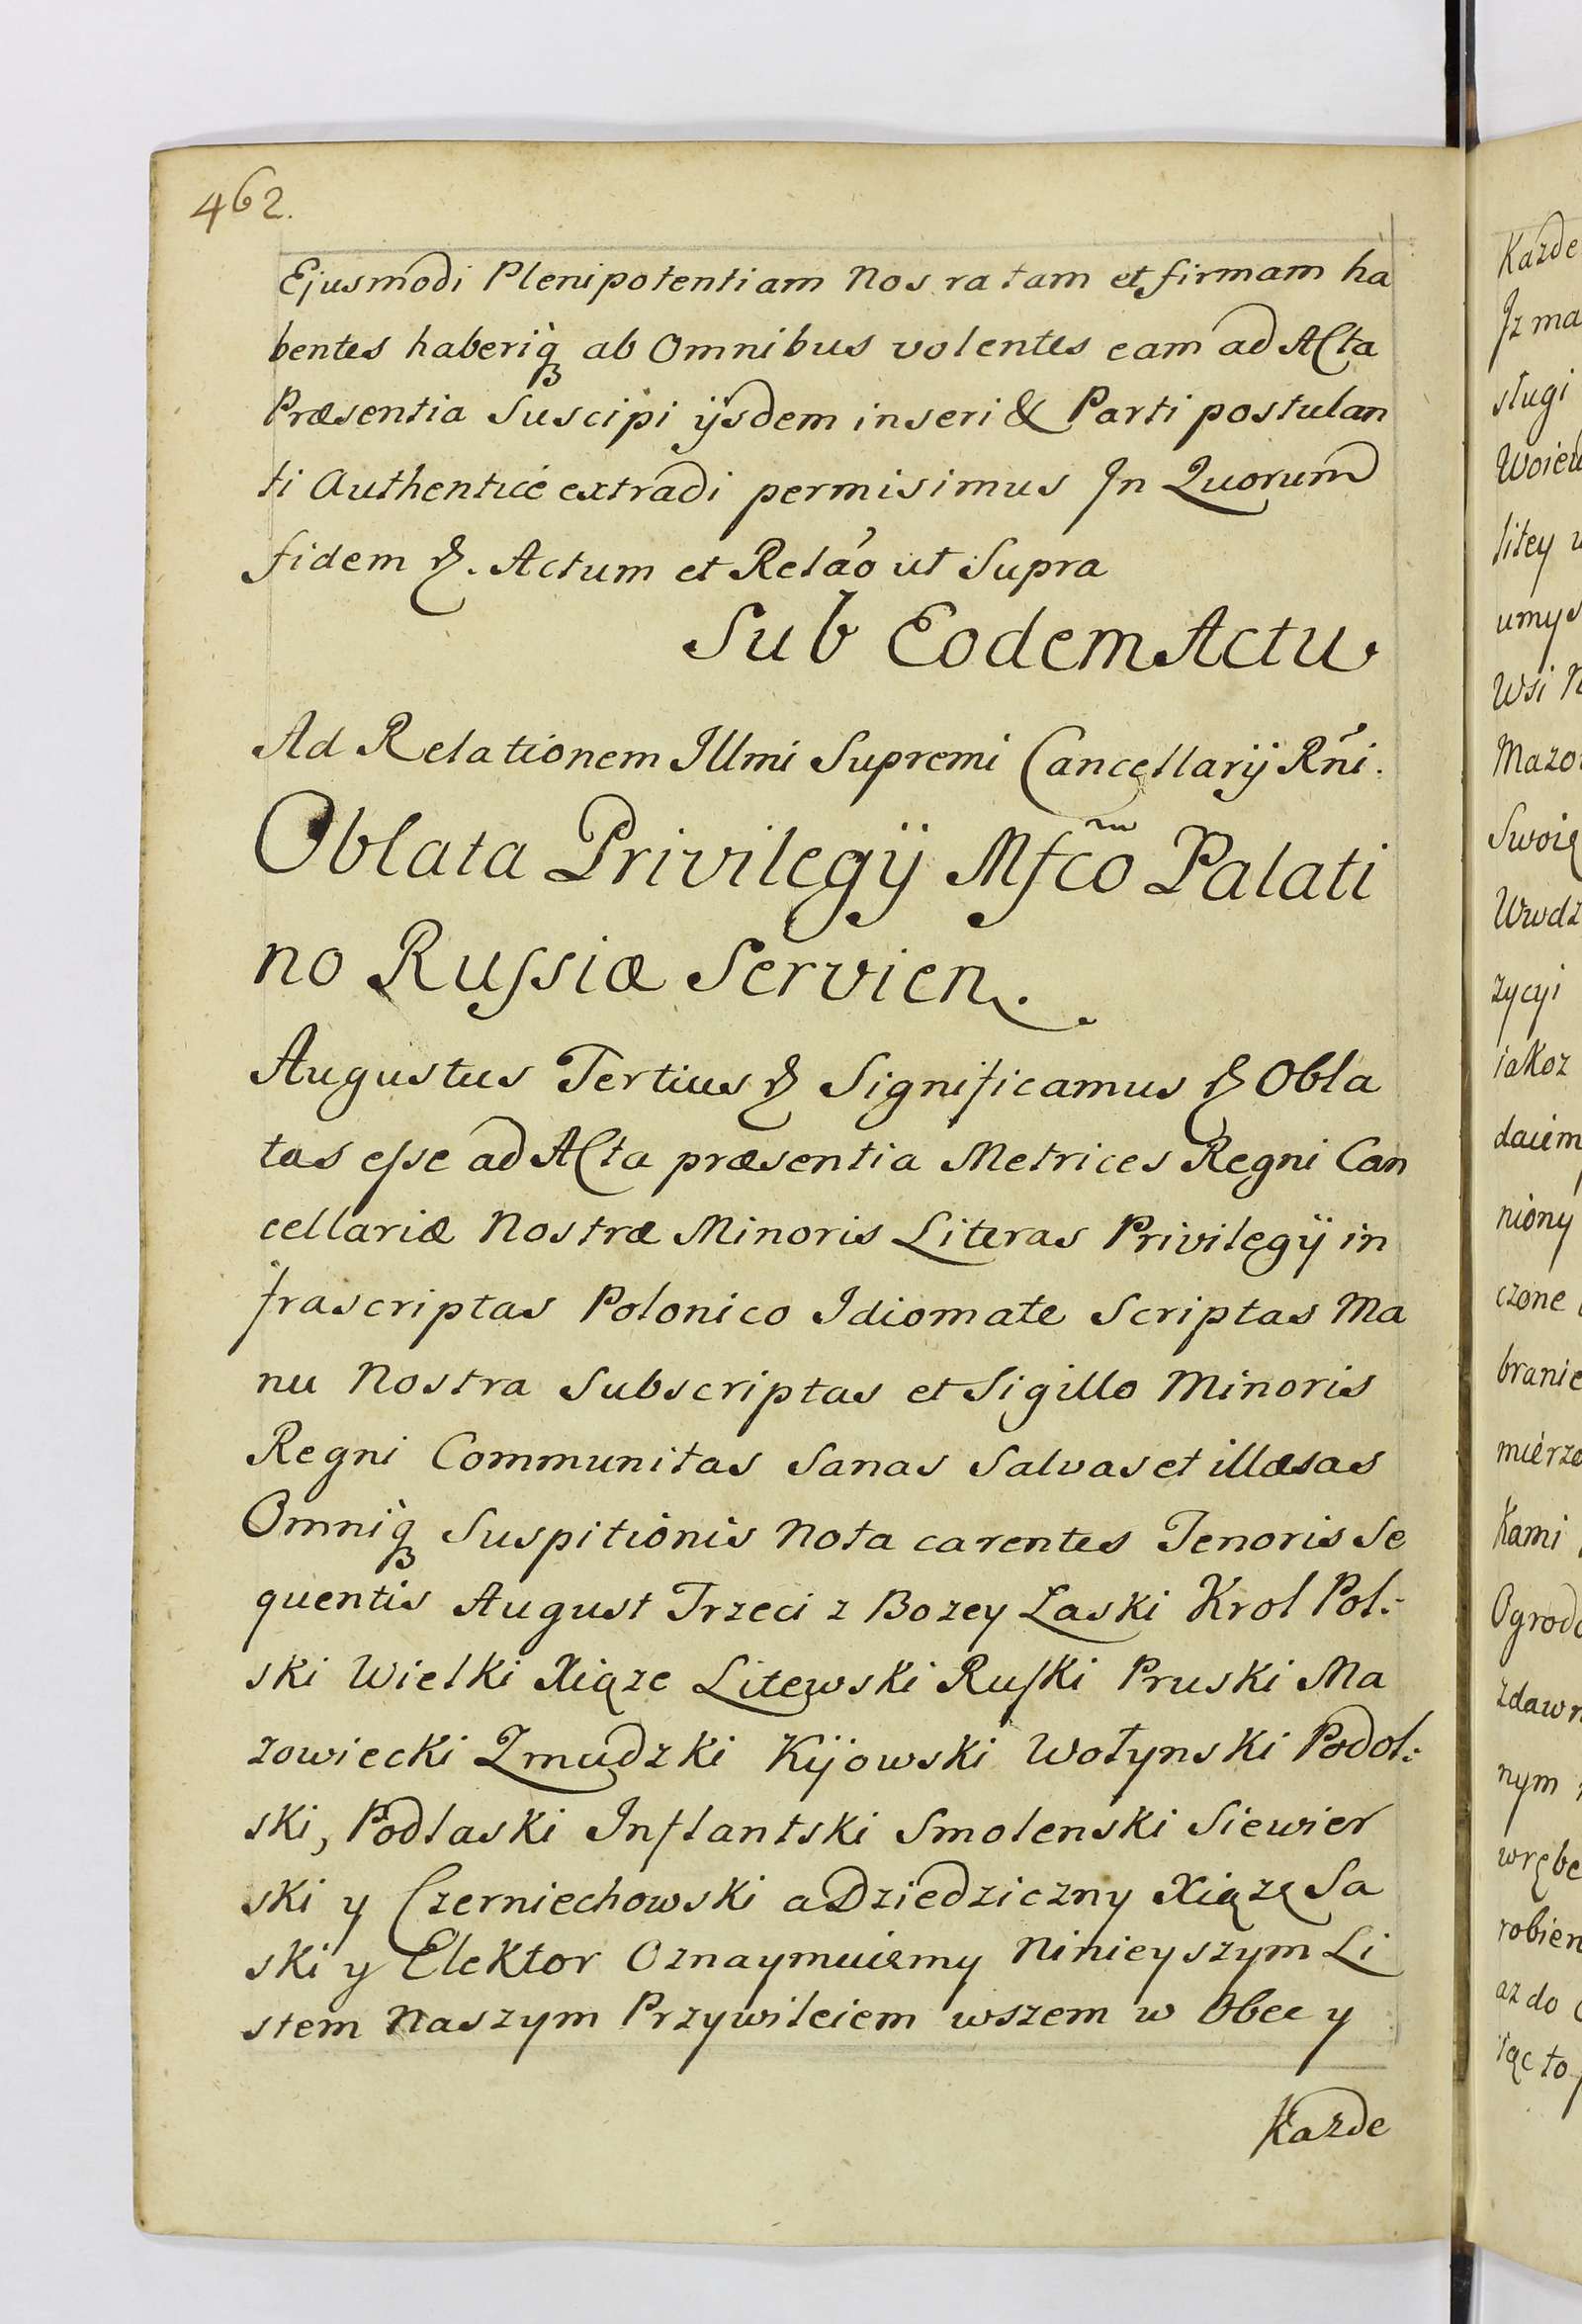 462.
Ejusmodi Plenipotentiam Nos ratam et firmam ha
bentes haberiq́ꝫ ab Omnibus volentes eam ad Acta
Præsentia Suscipi ijsdem inseri & Parti postulan
ti Authenticè extradi permisimus In Quorum
fidem &. Actum et Relao͂ ut Supra
Sub Eodem Actu
Ad Relationem Illmi Supremi Cancellarij Rñi.
Oblata Privilegij Mfco͂ Palati
no Rußiæ Servien.
Augustus Tertius & Significamus & Obla
tas eße ad Acta præsentia Metrices Regni Can
cellariæ Nostræ Minoris Literas Privilegij in
frascriptas Polonico Idiomate Scriptas Ma
nu Nostra Subscriptas et Sigillo Minoris
Regni Communitas Sanas Salvas et illæsas
Omniq́ꝫ Suspitionis Nota carentes Tenoris Se
quentis August Trzeci z Bozey Laski Krol Pol:
ski Wielki Xiąze Litewski Ruski Pruski Ma
zowiecki Zmudzki Kijowski Wołynski Podol:
ski, Podlaski Inflantski Smolenski Siewier
ski y Czerniechowski a Dziedziczny Xiązę Sa
ski y Elektor Oznaymuiemy Ninieyszym Li
stem Naszym Przywileiem wszem w Obec y
Kazde
Kazde
Jz ma
sługi
Woiew
litey
umys
Wsi
Mazo
Swoię
Urodz
zycyi
iakoz
daiem
niony
czone
branie
mierze
kami
Ogrod
zdawn
nym
wrębe
robien
az do
iąc to